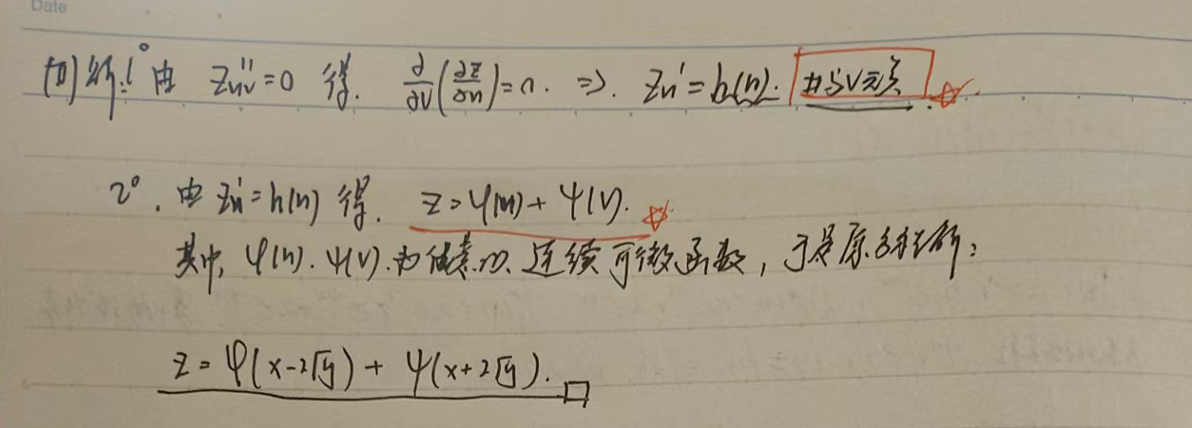 Date
(II) 解: 1° 由 Z''uv=0 得. ∂/∂v(∂z/∂u)=0. ⇒. Zu'=h(u). 其与V无关
2°. 由 Zu'=h(u) 得. Z=φ(u)+ψ(v).
其中, φ(u).ψ(v).为任意的.连续可微函数, 于是原方程解:
Z=φ(x-2√y)+ψ(x+2√y).